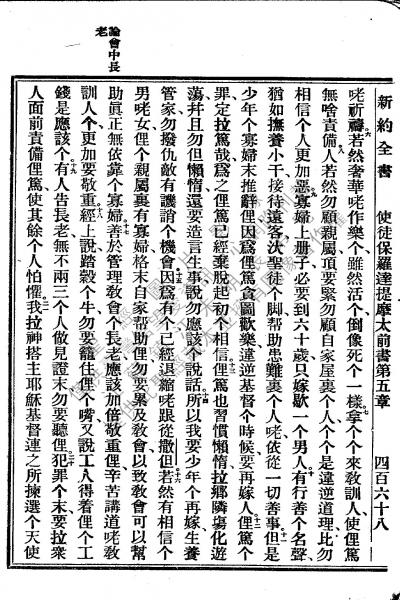 新約全書 使徒保羅達提摩太前書第五章 四百六十八
咾祈禱若然奢華咾作樂个雖然活个倒像死个一樣拿个个來敎訓人使俚篤
無啥責備人若然勿顧親屬頂要緊勿顧自家屋裏个人个个是違逆道理比勿
相信个人更加惡寡婦上册子必要到六十歲只嫁歇一个男人有行善个名聲
猶如撫養小干接待遠客汏聖徒个脚帮助患難裏个人咾依從一切善事但是
少年个寡婦末推辭俚因爲俚篤貪圖歡樂違逆基督个時候要再嫁人俚篤个
罪定拉篤哉爲之俚篤已經棄脫起初个相信俚篤也習慣懶惰拉鄉隣傷化遊
蕩幷且勿但懶惰還要造言生事說勿應該个說話所以我要少年个再嫁生養
管家勿撥仇敵有譏誚个機會因爲有个已經退縮咾跟從撒但若然有相信个
男咾女俚个親屬裏有寡婦格末自家帮助俚勿要累及敎會以致敎會可以幫
助眞正無依靠个寡婦善於管理敎會个長老應該加倍敬重俚辛苦講道咾敎
訓人个更加要敬重經上說踏穀个牛勿要籠住俚个嘴又說工人得着俚个工
錢是應該个有人吿長老無不兩三个人做見證末勿要聽俚犯罪个末要拉衆
人面前責備俚篤使其餘个人怕懼我拉神搭主耶穌基督連之所揀選个天使
論會中長
老